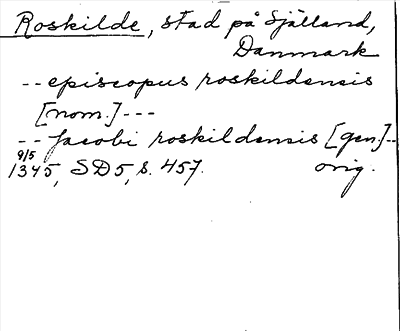 Roskilde, stad på Själland,
Danmark
-- episcopus roskildensis
[nom.] ---
-- Jacobi roskildensis [gen.] --
9/5
1345, SD5, s. 457. orig.